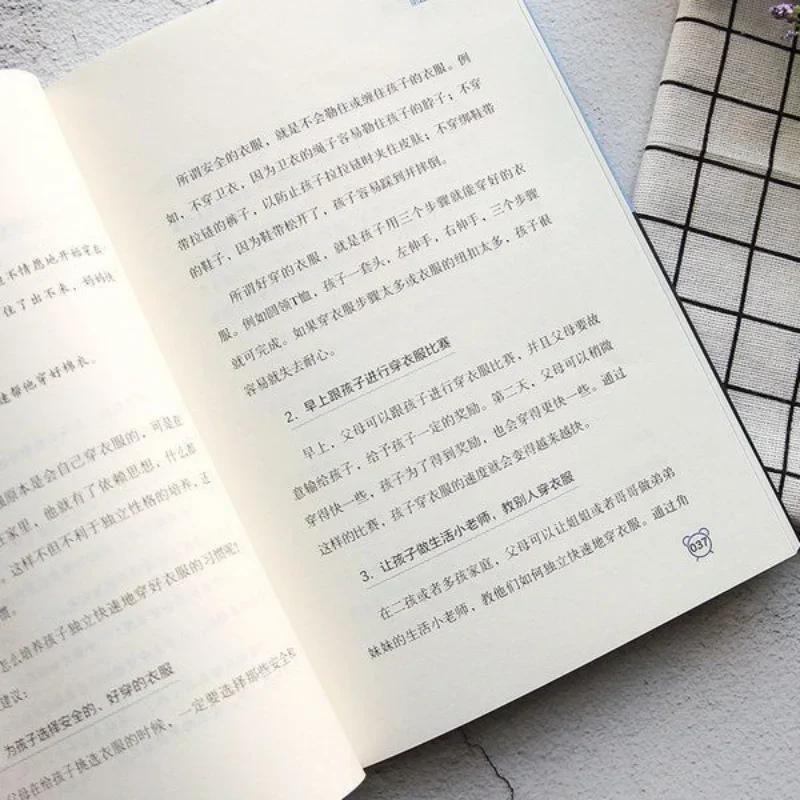 且不情愿地开始穿衣
住了出不来，妈妈
速帮他穿好棉衣。
原本是会自己穿衣服的，可是在
家里，他就有了依赖思想，什么都
。这样不但不利于独立性格的培养，还
怎么培养孩子独立快速地穿好衣服的习惯呢
建议：
为孩子选择安全的、好穿的衣服
父母在给孩子挑选衣服的时候，一定要选择那些安全和
所谓安全的衣服，就是不会勒住或缠住孩子的衣服。例
如，不穿卫衣，因为卫衣的绳子容易勒住孩子的脖子；不穿
带拉链的裤子，以防止孩子拉拉链时夹住皮肤；不穿绑鞋带
的鞋子，因为鞋带松开了，孩子容易踩到并摔倒。
所谓好穿的衣服，就是孩子用三个步骤就能穿好的衣
服。例如圆领T恤，孩子一套头，左伸手，右伸手，三个步骤
就可完成。如果穿衣服步骤太多或衣服的纽扣太多，孩子很
容易就失去耐心。
2. 早上跟孩子进行穿衣服比赛
早上，父母可以跟孩子进行穿衣服比赛，并且父母要故
意输给孩子，给予孩子一定的奖励。第二天，父母可以稍微
穿得快一些，孩子为了得到奖励，也会穿得更快一些。通过
这样的比赛，孩子穿衣服的速度就会变得越来越快。
3. 让孩子做生活小老师，教别人穿衣服
在二孩或者多孩家庭，父母可以让姐姐或者哥哥做弟弟
妹妹的生活小老师，教他们如何独立快速地穿衣服。通过角
037